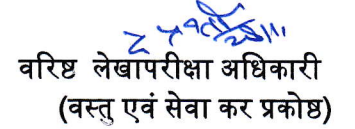 वरिष्ठ लेखापरीक्षा अधिकारी
(वस्तु एवं सेवा कर प्रकोष्ठ)